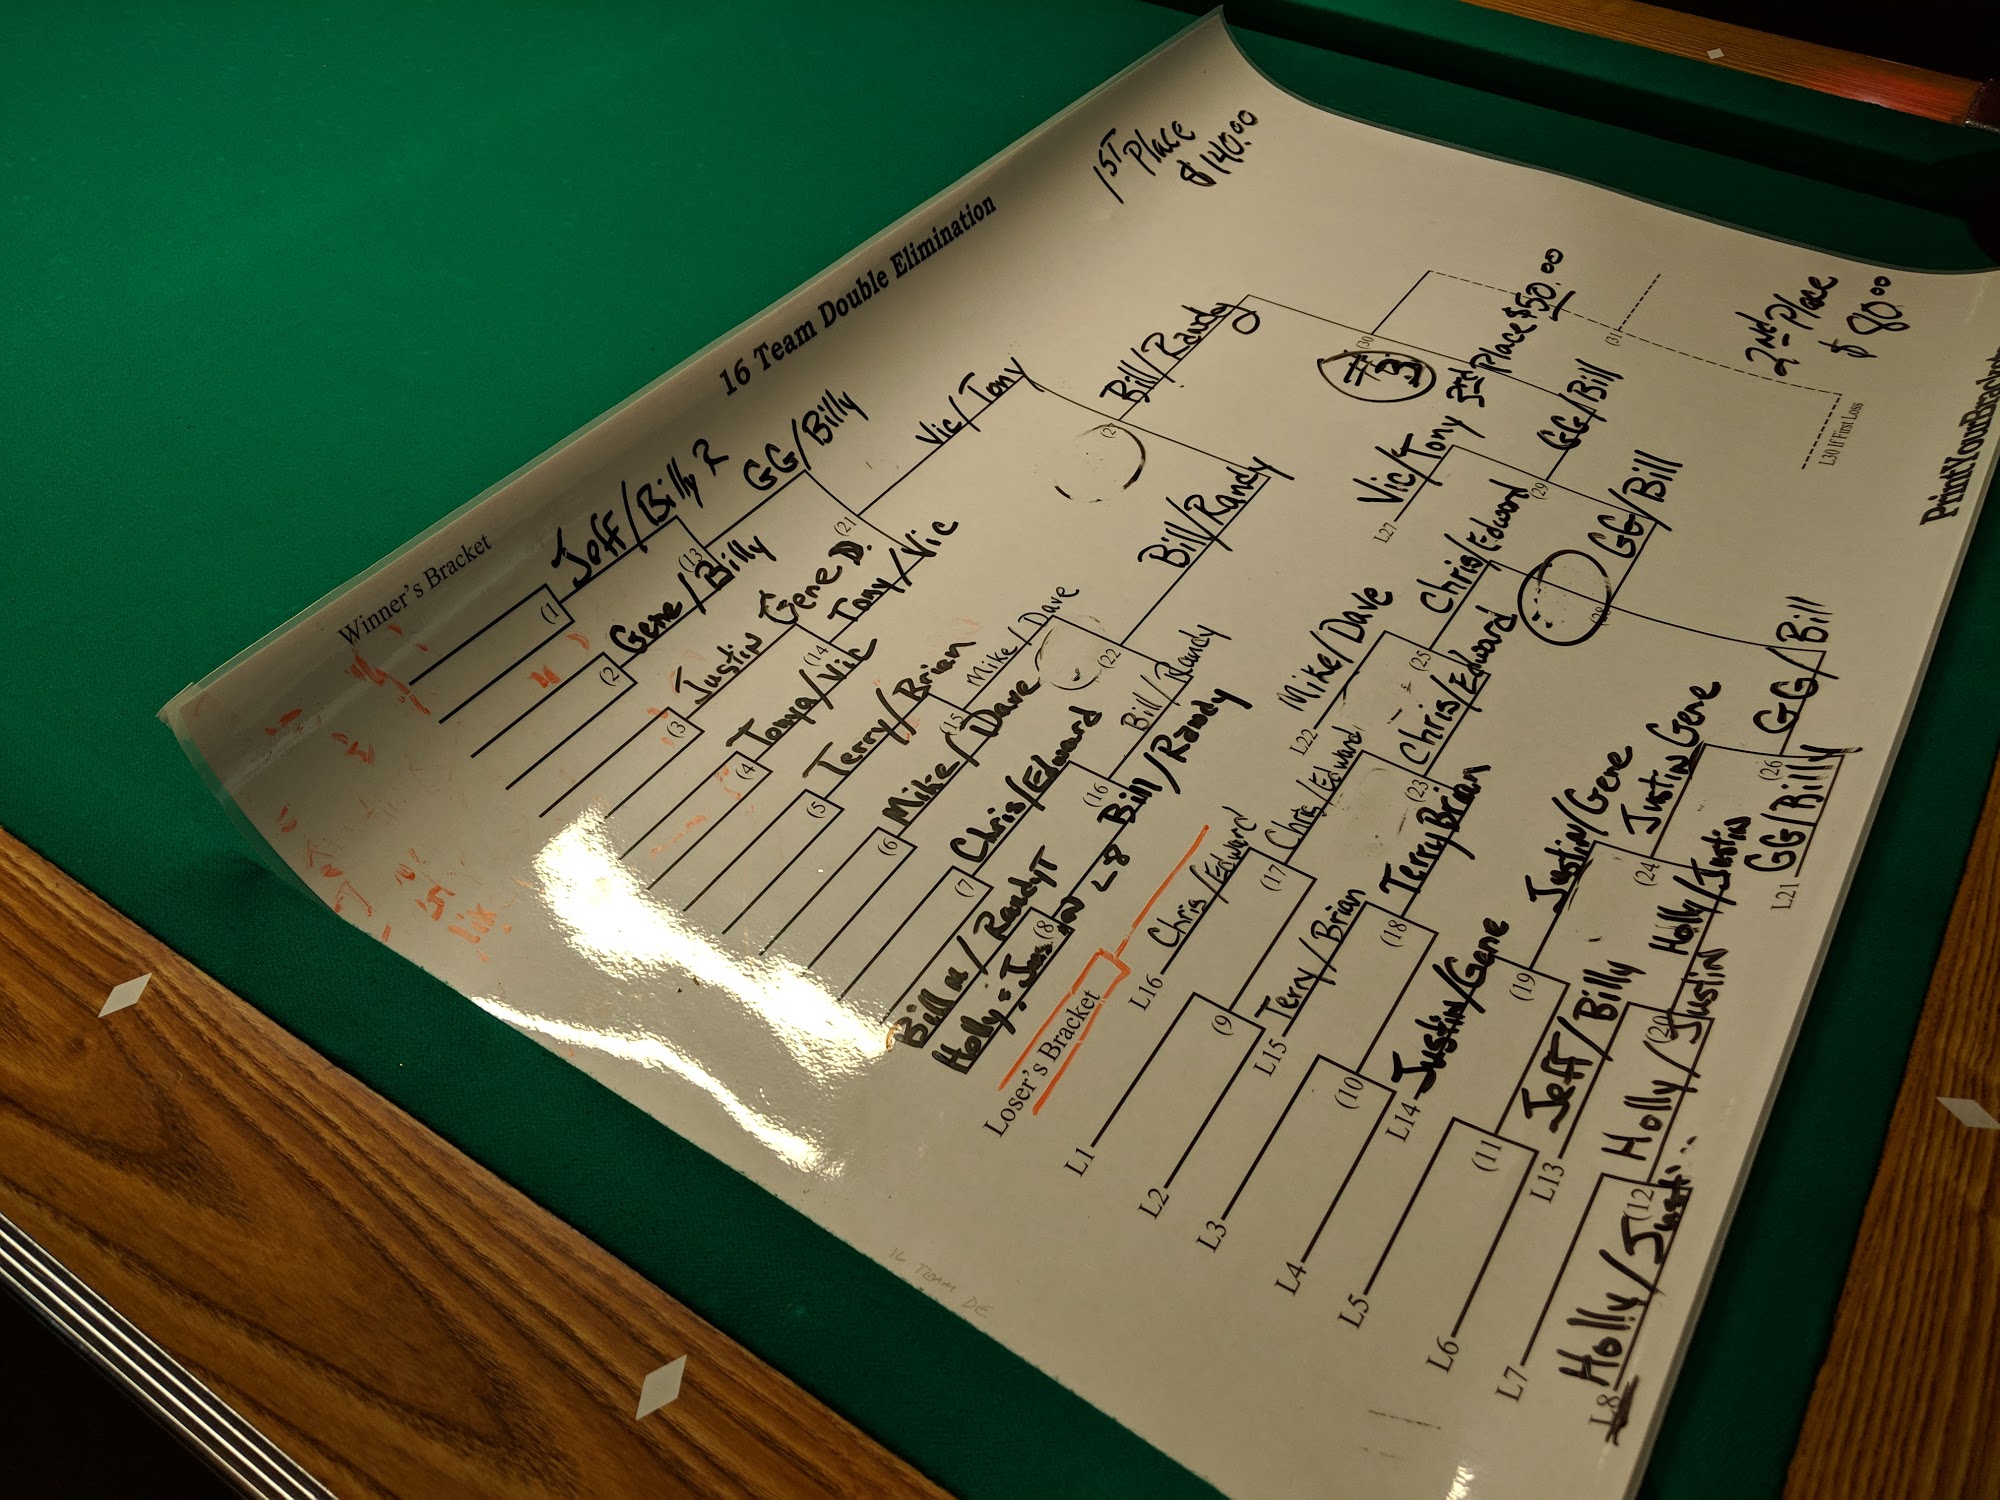 16 Team Double Elimination
1ST Place
$ 140.00
Winner's Bracket
Jeff/Billy R
(1
GG/Billy
(13
Gene/Billy
(2
Vic/Tony
(21
Justin Gene D.
(3
Tony/Vic
(14
Tonya/Vic
(4
Bill/Randy
(27
Terry/Brian
(5
Mike/Dave
(15
Mike/Dave
(6
Bill/Randy
(22
Chris/Edward
(7
Bill/Randy
(16
Bill/Randy
Bill M/Randy T
(8
L8
(30
#3
3rd Place $50.00
(31
2nd Place
$ 80.00
L30 If First Loss
Loser's Bracket
L16 Chris/Edward
Chris/Edward
(17
L1
(9
L2
L22 Mike/Dave
Chris/Edward
(25
Chris/Edward
(23
L15 Terry/Brian
Terry Brian
(18
L3
(10
L4
L27 Vic/Tony
GG/Bill
(29
GG/Bill
(28
L14 Justin/Gene
Justin/Gene
(19
L5
(11
L6
Justin Gene
(24
L13 Jeff/Billy
Holly/Justin
(20
L7
Holly/Justin
(12
L8 Holly/Justi..
GG/Bill
(26
L21 GG/Billy
16 TEAM DE